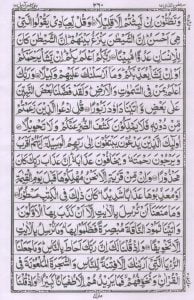 ٢٦٠
وَتَظُنُّوْنَ اِنْ لَّبِثْتُمْ اِلَّا قَلِيْلًا وَقُلْ لِّعِبَادِيْ يَقُوْلُوا الَّتِيْ
هِيَ اَحْسَنُ اِنَّ الشَّيْطٰنَ يَنْزَغُ بَيْنَهُمْ اِنَّ الشَّيْطٰنَ كَانَ
لِلْاِنْسَانِ عَدُوًّا مُّبِيْنًا رَبُّكُمْ اَعْلَمُ بِكُمْ اِنْ يَّشَاْ يَرْحَمْكُمْ
اَوْ اِنْ يَّشَاْ يُعَذِّبْكُمْ وَمَا اَرْسَلْنٰكَ عَلَيْهِمْ وَكِيْلًا وَرَبُّكَ
اَعْلَمُ بِمَنْ فِي السَّمٰوٰتِ وَالْاَرْضِ وَلَقَدْ فَضَّلْنَا بَعْضَ النَّبِيّٖنَ
عَلٰى بَعْضٍ وَّاٰتَيْنَا دَاوٗدَ زَبُوْرًا قُلِ ادْعُوا الَّذِيْنَ زَعَمْتُمْ
مِّنْ دُوْنِهٖ فَلَا يَمْلِكُوْنَ كَشْفَ الضُّرِّ عَنْكُمْ وَلَا تَحْوِيْلًا
اُولٰٓئِكَ الَّذِيْنَ يَدْعُوْنَ يَبْتَغُوْنَ اِلٰى رَبِّهِمُ الْوَسِيْلَةَ اَيُّهُمْ اَقْرَبُ
وَيَرْجُوْنَ رَحْمَتَهٗ وَيَخَافُوْنَ عَذَابَهٗ اِنَّ عَذَابَ رَبِّكَ كَانَ
مَحْذُوْرًا وَاِنْ مِّنْ قَرْيَةٍ اِلَّا نَحْنُ مُهْلِكُوْهَا قَبْلَ يَوْمِ الْقِيٰمَةِ
اَوْ مُعَذِّبُوْهَا عَذَابًا شَدِيْدًا كَانَ ذٰلِكَ فِي الْكِتٰبِ مَسْطُوْرًا
وَمَا مَنَعَنَا اَنْ نُّرْسِلَ بِالْاٰيٰتِ اِلَّا اَنْ كَذَّبَ بِهَا الْاَوَّلُوْنَ
وَاٰتَيْنَا ثَمُوْدَ النَّاقَةَ مُبْصِرَةً فَظَلَمُوْا بِهَا وَمَا نُرْسِلُ بِالْاٰيٰتِ
اِلَّا تَخْوِيْفًا وَاِذْ قُلْنَا لَكَ اِنَّ رَبَّكَ اَحَاطَ بِالنَّاسِ وَمَا جَعَلْنَا
الرُّءْيَا الَّتِيْ اَرَيْنٰكَ اِلَّا فِتْنَةً لِّلنَّاسِ وَالشَّجَرَةَ الْمَلْعُوْنَةَ فِي
الْقُرْاٰنِ وَنُخَوِّفُهُمْ فَمَا يَزِيْدُهُمْ اِلَّا طُغْيَانًا كَبِيْرًا